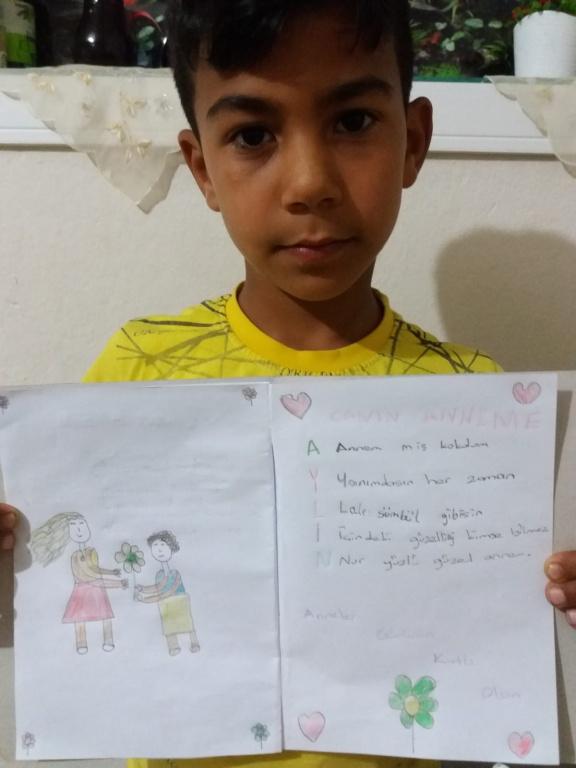 CANIM ANNEME
A Annem mis kokulum
Y Yanımdasın her zaman
L Lale sümbül gibisin
İ İçindeki güzelliği kimse bilmez
N Nur yüzlü güzel annem.
Anneler
Kutlu
Olsun